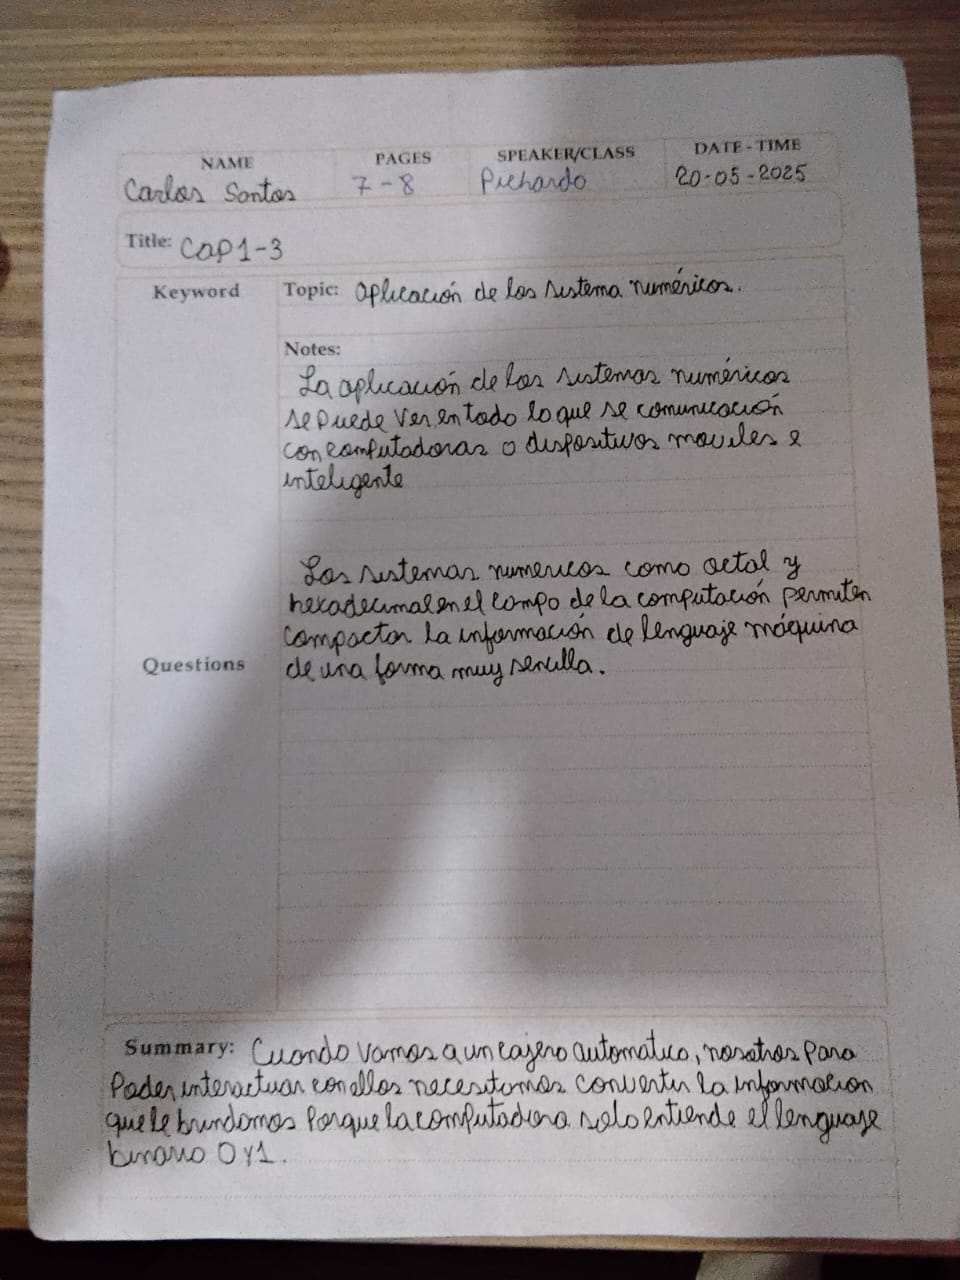 NAME PAGES SPEAKER/CLASS DATE-TIME
Carlos Santos 7-8 Pichardo 20-05-2025
Title: Cap1-3
Keyword Topic: Aplicación de los sistema numéricos.
Notes:
La aplicación de los sistemas numéricos
se puede ver, en todo lo que se comunicación
con computadoras o dispositivos moviles e
inteligente
Los sistemas numericos como octal y
hexadecimal en el campo de la computación permiten
compactar la información de lenguaje máquina
Questions de una forma muy sencilla.
Summary: Cuando vamos a un cajero automatico, nosotros para
Poder interactuar con ellos necesitamos convertir la informacion
que le brindamos Porque la computadora solo entiende el lenguaje
binario 0 y 1.